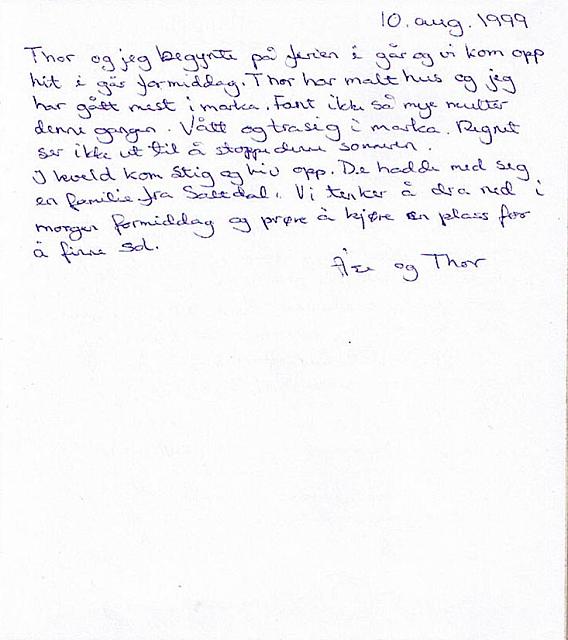 10. aug. 1999
Thor og jeg begynte på ferien i går og vi kom opp
hit i går formiddag. Thor har malt hus og jeg
har gått mest i marka. Fant ikke så mye multer
denne gangen. Vått og trasig i marka. Regnet
ser ikke ut til å stoppe denne sommeren.
I kveld kom Stig og Liv opp. De hadde med seg
en familie fra Saltdal. Vi tenker å dra ned i
morgen formiddag og prøve å kjøre en plass for
å finne sol.
og Thor